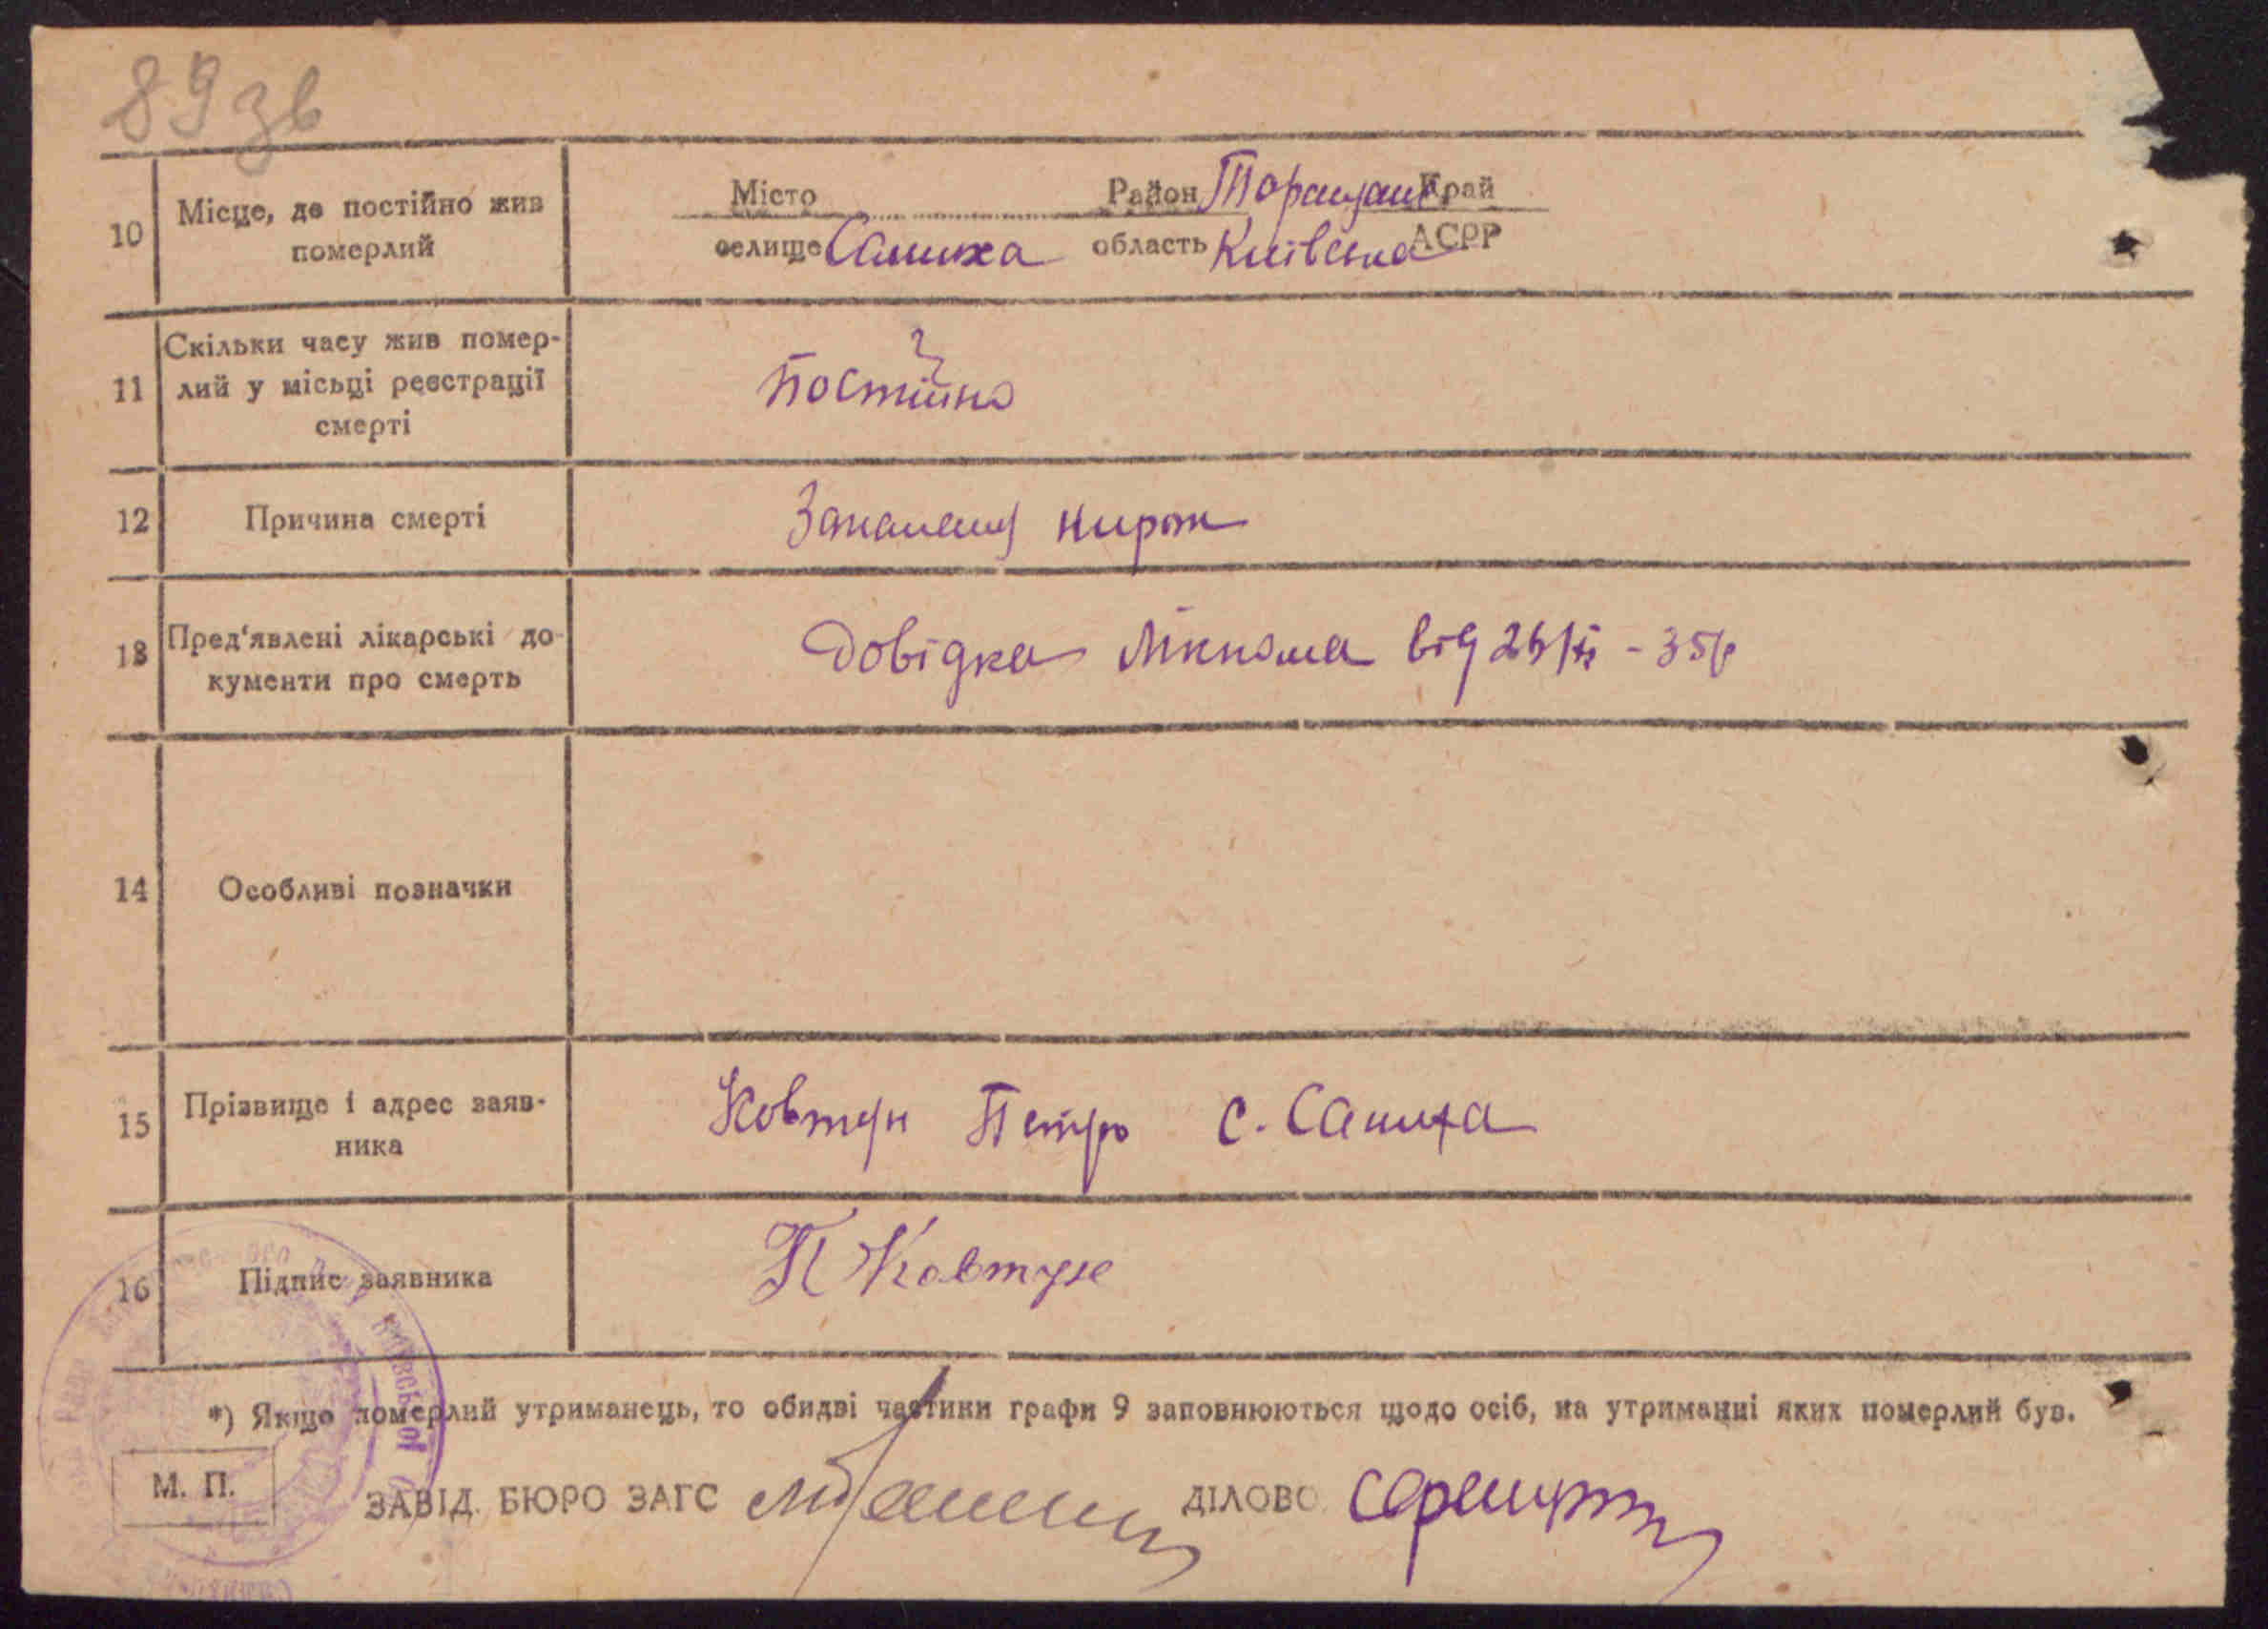 89 зв
10
Місце, де постійно жив
померлий
Місто Район Торащан Край
селище Саниха область Київська АСРР
11
Скільки часу жив помер-
лий у місьці реєстрації
смерті
Постійно
12
Причина смерті
нирок
13
Пред'явлені лікарські до-
кументи про смерть
Довідка Лікпома від
35р
14
Особливі позначки
15
Прізвище і адрес заяв-
ника
Ковтун Петро с. Саниха
16
Підпис заявника
П Ковтун
*) Якщо померлий утриманець, то обидві частини графи 9 заповнюються щодо осіб, на утриманні яких померлий був.
М. П.
ЗАВІД. БЮРО ЗАГС
ДІЛОВО
КИЇВСЬКОЇ